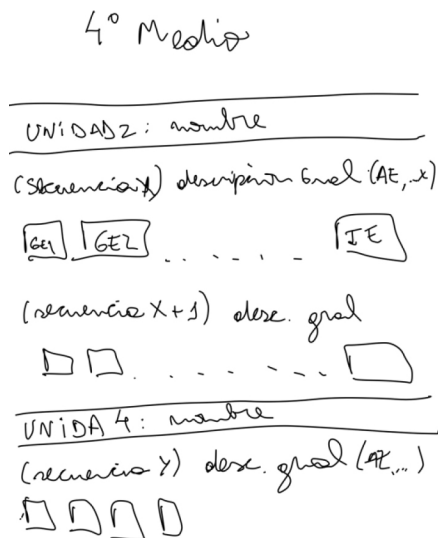 4° Medio
UNIDAD2: nombre
(secuencia X) descripción Gral (AE, ..x)
GE1 GE2 . . . . . . IE
(secuencia X+1) desc. gral
UNIDA 4: nombre
(secuencia Y) desc. gral (AE,...)